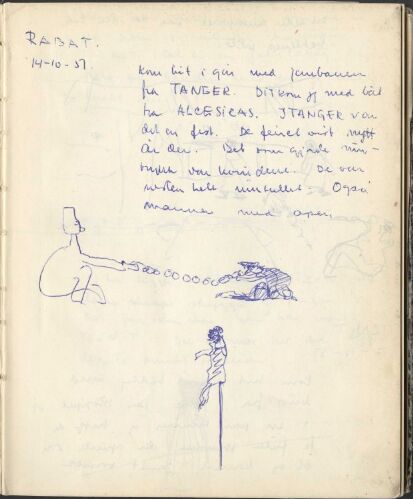 RABAT.
14-10-51.
Kom hit i går med jernbanen
fra TANGER. Dit kom jeg med båt
fra ALGESIRAS. I TANGER var
det en fest. De feiret visst nytt
år der. Det som gjorde inn-
trykk var kvindene. De var
nesten helt Også
mannen med apen.